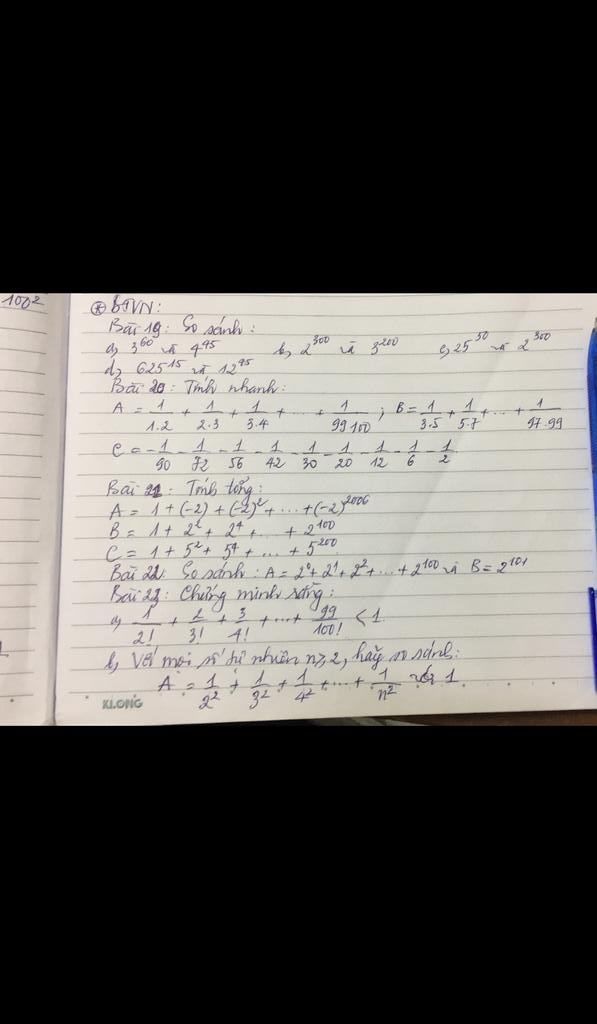 100²
⊛ BTVN:
Bài 19: So sánh:
a, 3^60 và 4^45 b, 2^300 và 3^200 c, 25^50 và 2^300
d, 625^15 và 12^45
Bài 20: Tính nhanh:
A = 1/1.2 + 1/2.3 + 1/3.4 + ... + 1/99.100 ; B = 1/3.5 + 1/5.7 + ... + 1/97.99
C = -1/90 - 1/72 - 1/56 - 1/42 - 1/30 - 1/20 - 1/12 - 1/6 - 1/2
Bài 21: Tính tổng:
A = 1 + (-2) + (-2)² + ... + (-2)^2006
B = 1 + 2² + 2⁴ + ... + 2^100
C = 1 + 5² + 5⁴ + ... + 5^200
Bài 22: So sánh: A = 2⁰ + 2¹ + 2² + ... + 2^100 và B = 2^101
Bài 23: Chứng minh rằng:
a, 1/2! + 2/3! + 3/4! + ... + 99/100! < 1
b, Với mọi số tự nhiên n ≥ 2, hãy so sánh:
A = 1/2² + 1/3² + 1/4² + ... + 1/n² với 1
KLONG